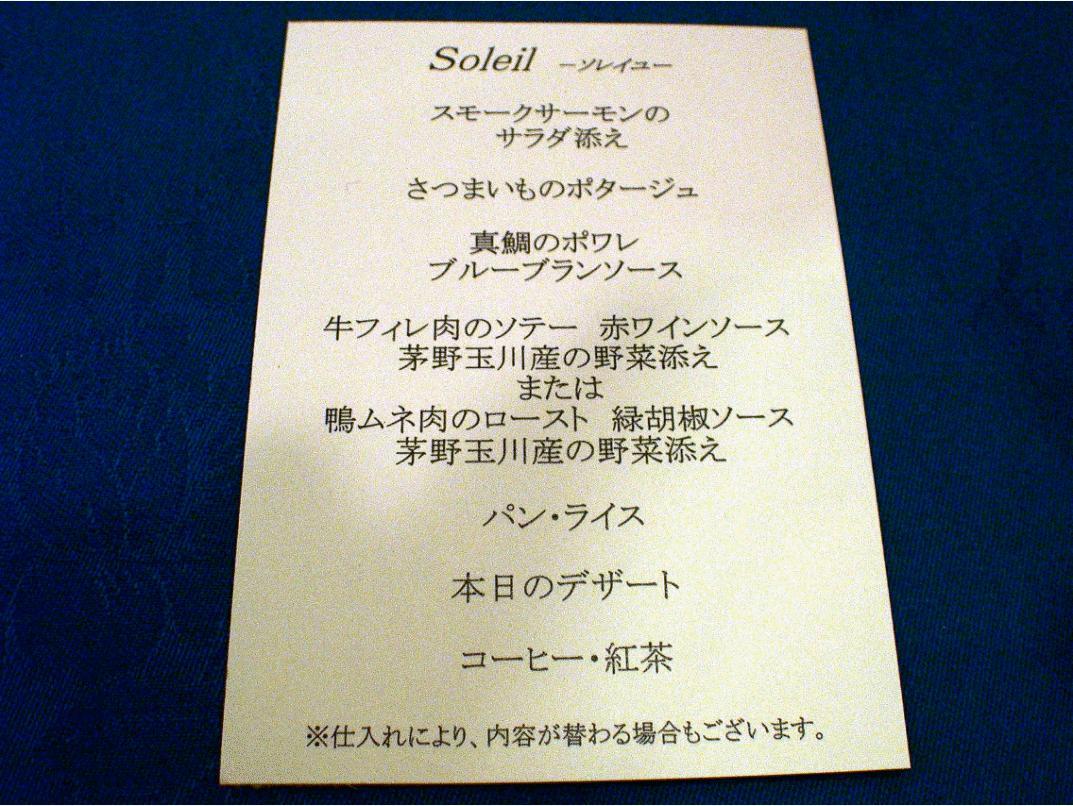 Soleil －ソレイユ－
スモークサーモンの
サラダ添え
さつまいものポタージュ
真鯛のポワレ
ブルーブランソース
牛フィレ肉のソテー　赤ワインソース
茅野玉川産の野菜添え
または
鴨ムネ肉のロースト　緑胡椒ソース
茅野玉川産の野菜添え
パン・ライス
本日のデザート
コーヒー・紅茶
※仕入れにより、内容が替わる場合もございます。